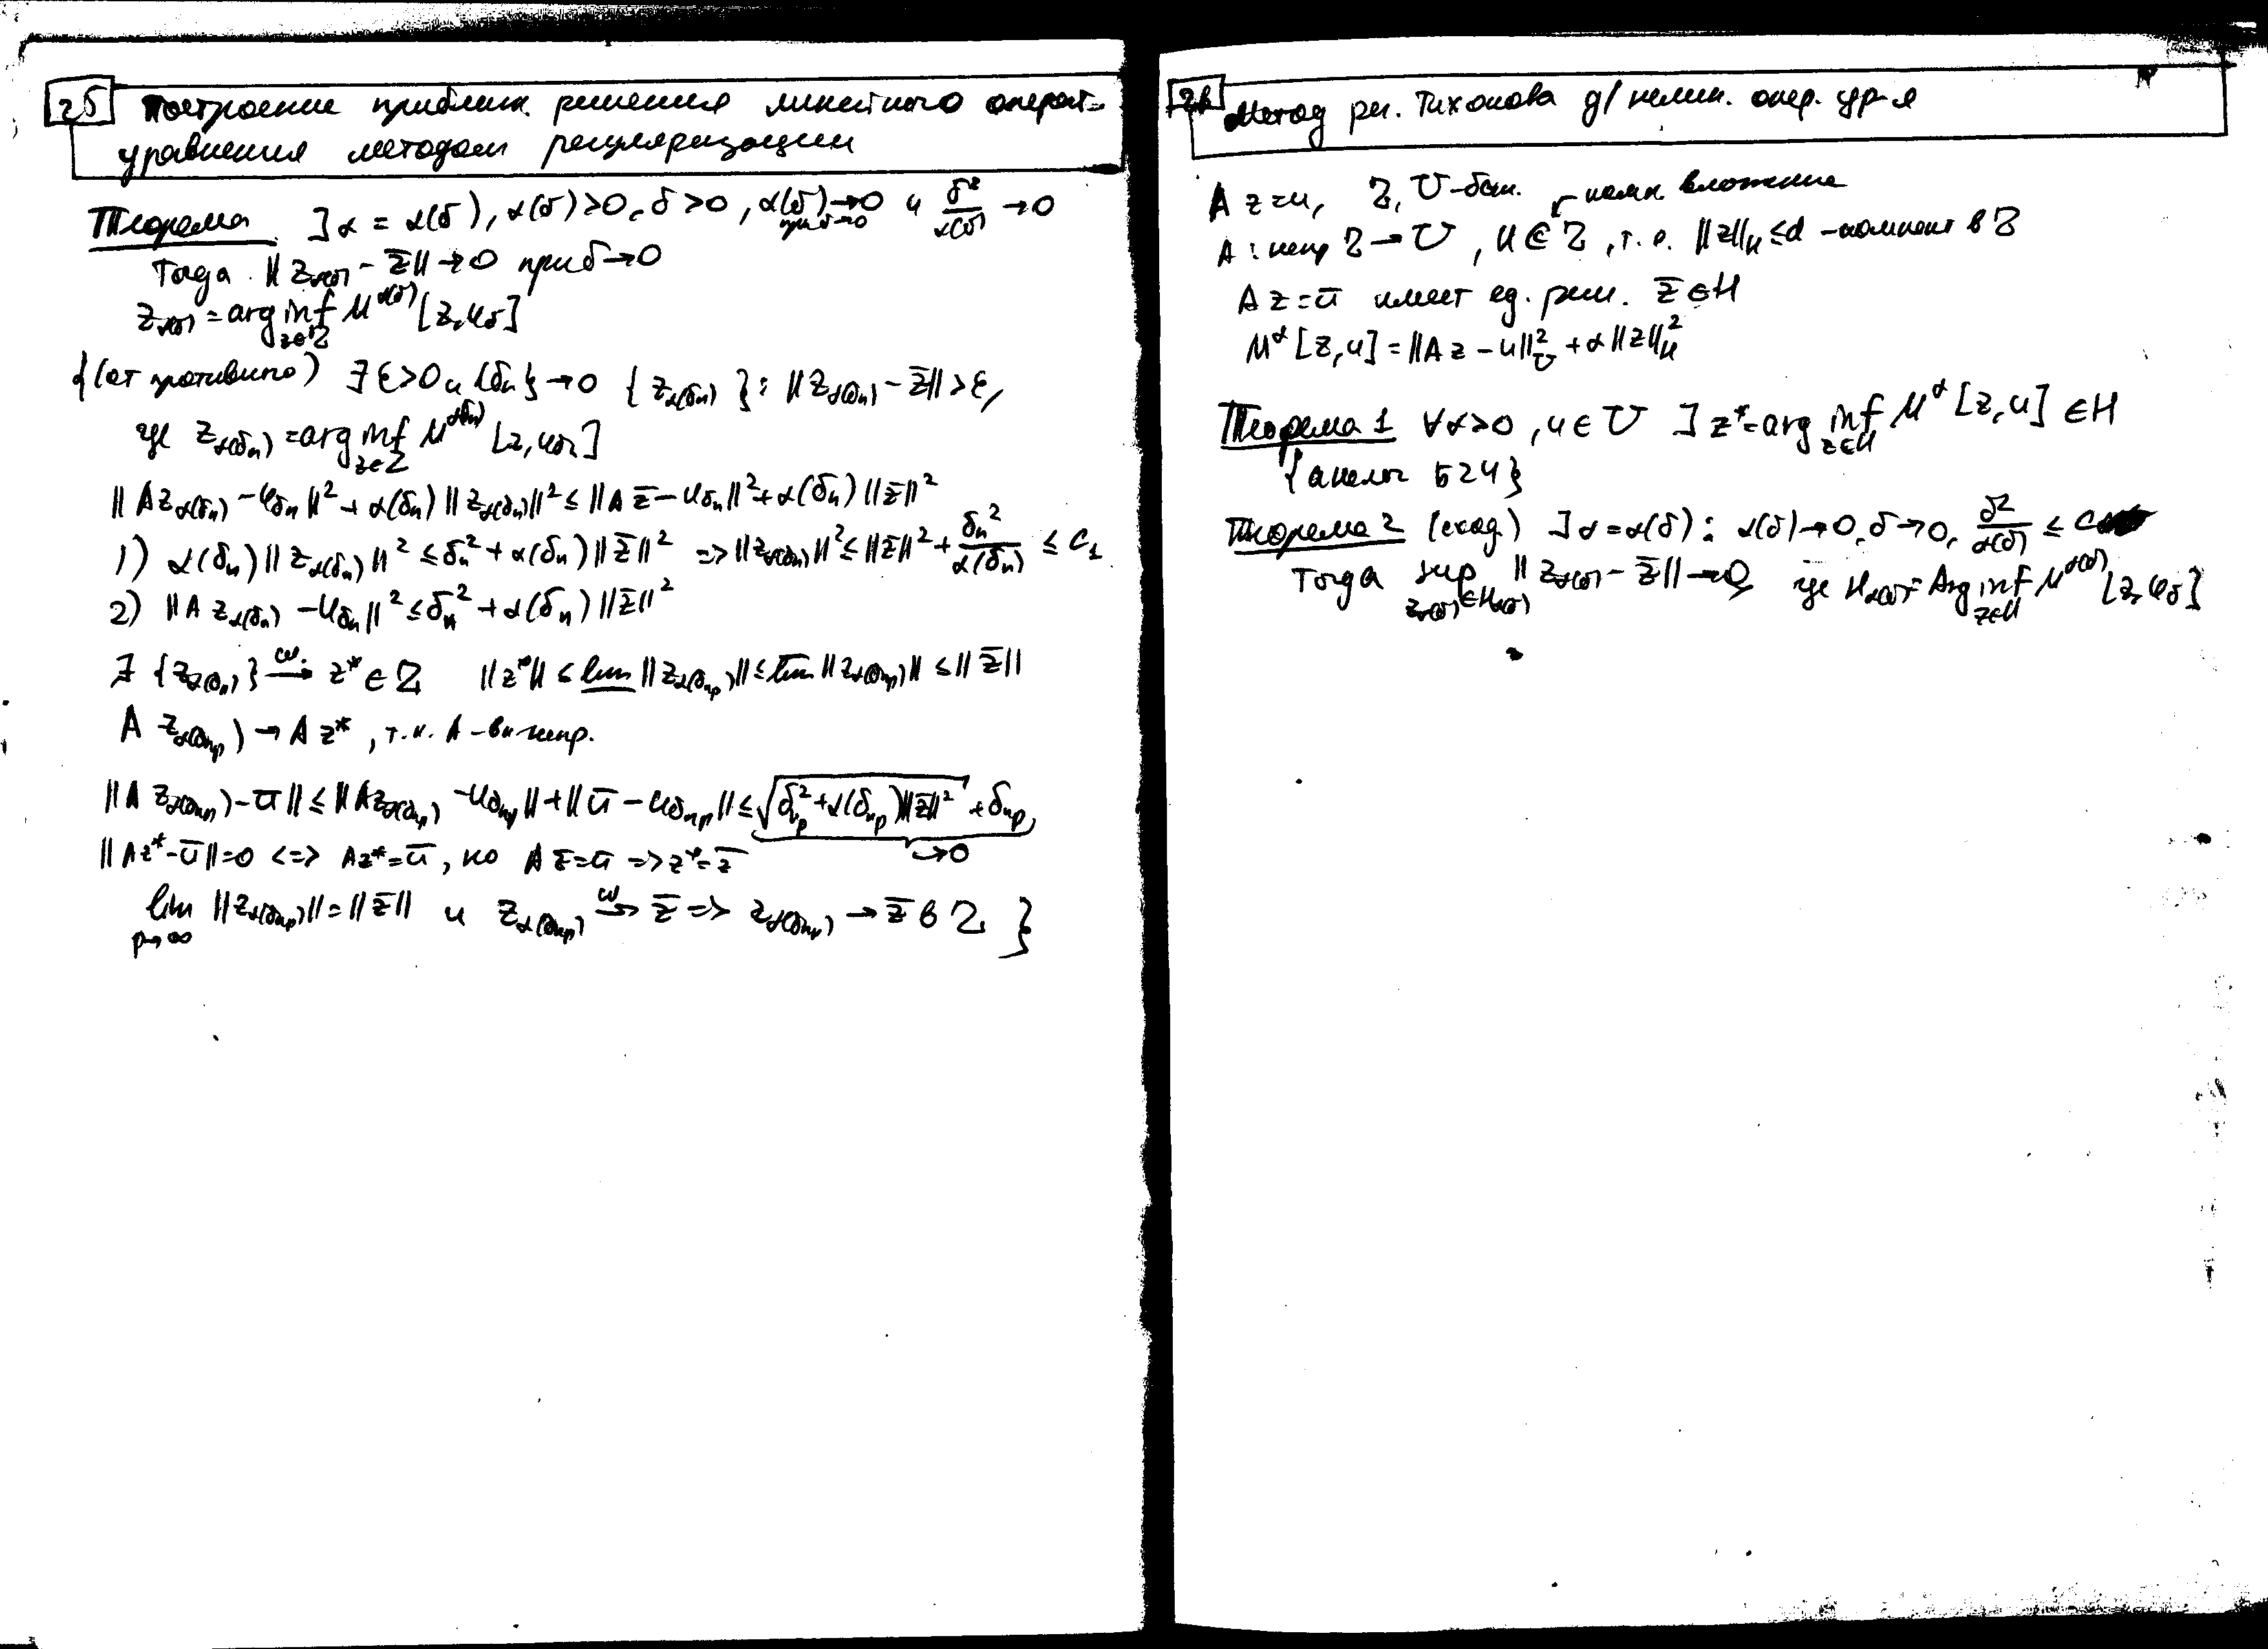 25 Построение приближ. решения линейного операт-
уравнения методом регуляризации
Теорема ∃ α = α(δ), α(δ)>0, δ>0, α(δ)→0 при δ→0 и δ²/α(δ) → 0
Тогда ‖z_α(δ) − z̄‖ → 0 при δ→0
z_α(δ) = arg inf_{z∈Z} M^α(δ) [z, u_δ]
{(от противного) ∃ ε>0 и {δₙ}→0 {z_α(δₙ)} : ‖z_α(δₙ) − z̄‖ > ε,
где z_α(δₙ) = arg inf_{z∈Z} M^α(δₙ) [z, u_δₙ]
‖Az_α(δₙ) − u_δₙ‖² + α(δₙ)‖z_α(δₙ)‖² ≤ ‖Az̄ − u_δₙ‖² + α(δₙ)‖z̄‖²
1) α(δₙ)‖z_α(δₙ)‖² ≤ δₙ² + α(δₙ)‖z̄‖² => ‖z_α(δₙ)‖² ≤ ‖z̄‖² + δₙ²/α(δₙ) ≤ C₁
2) ‖Az_α(δₙ) − u_δₙ‖² ≤ δₙ² + α(δₙ)‖z̄‖²
∃ {z_α(δₙ)} →^ω z* ∈ Z ‖z*‖ ≤ lim ‖z_α(δₙₚ)‖ ≤ lim ‖z_α(δₙₚ)‖ ≤ ‖z̄‖
A z_α(δₙₚ) → A z*, т.к. A – вп. непр.
‖A z_α(δₙₚ) − ū‖ ≤ ‖Az_α(δₙₚ) − u_δₙₚ‖ + ‖ū − u_δₙₚ‖ ≤ √(δₙₚ² + α(δₙₚ)‖z̄‖²) + δₙₚ,
→0
‖Az* − ū‖ = 0 <=> Az* = ū, но A z̄ = ū => z* = z̄
lim_{p→∞} ‖z_α(δₙₚ)‖ = ‖z̄‖ и z_α(δₙₚ) →^ω z̄ => z_α(δₙₚ) → z̄ в Z }
26 Метод рег. Тихонова д/ нелин. опер. ур-я
A z = u, Z, U – бан. комп. вложение
A : непр Z → U, H ⋐ Z, т.е. ‖z‖_H ≤ d – компакт в Z
A z = ū имеет ед. реш. z̄ ∈ H
M^α [z, u] = ‖A z − u‖²_U + α‖z‖²_H
Теорема 1 ∀α>0, u∈U ∃ z* = arg inf_{z∈H} M^α [z, u] ∈ H
{аналог Б24}
Теорема 2 (сход) ∃ α = α(δ) : α(δ)→0, δ→0, δ²/α(δ) ≤ C
Тогда sup_{z_α(δ)∈H_α(δ)} ‖z_α(δ) − z̄‖ → 0, где H_α(δ) = Arg inf_{z∈H} M^α(δ) [z, u_δ]